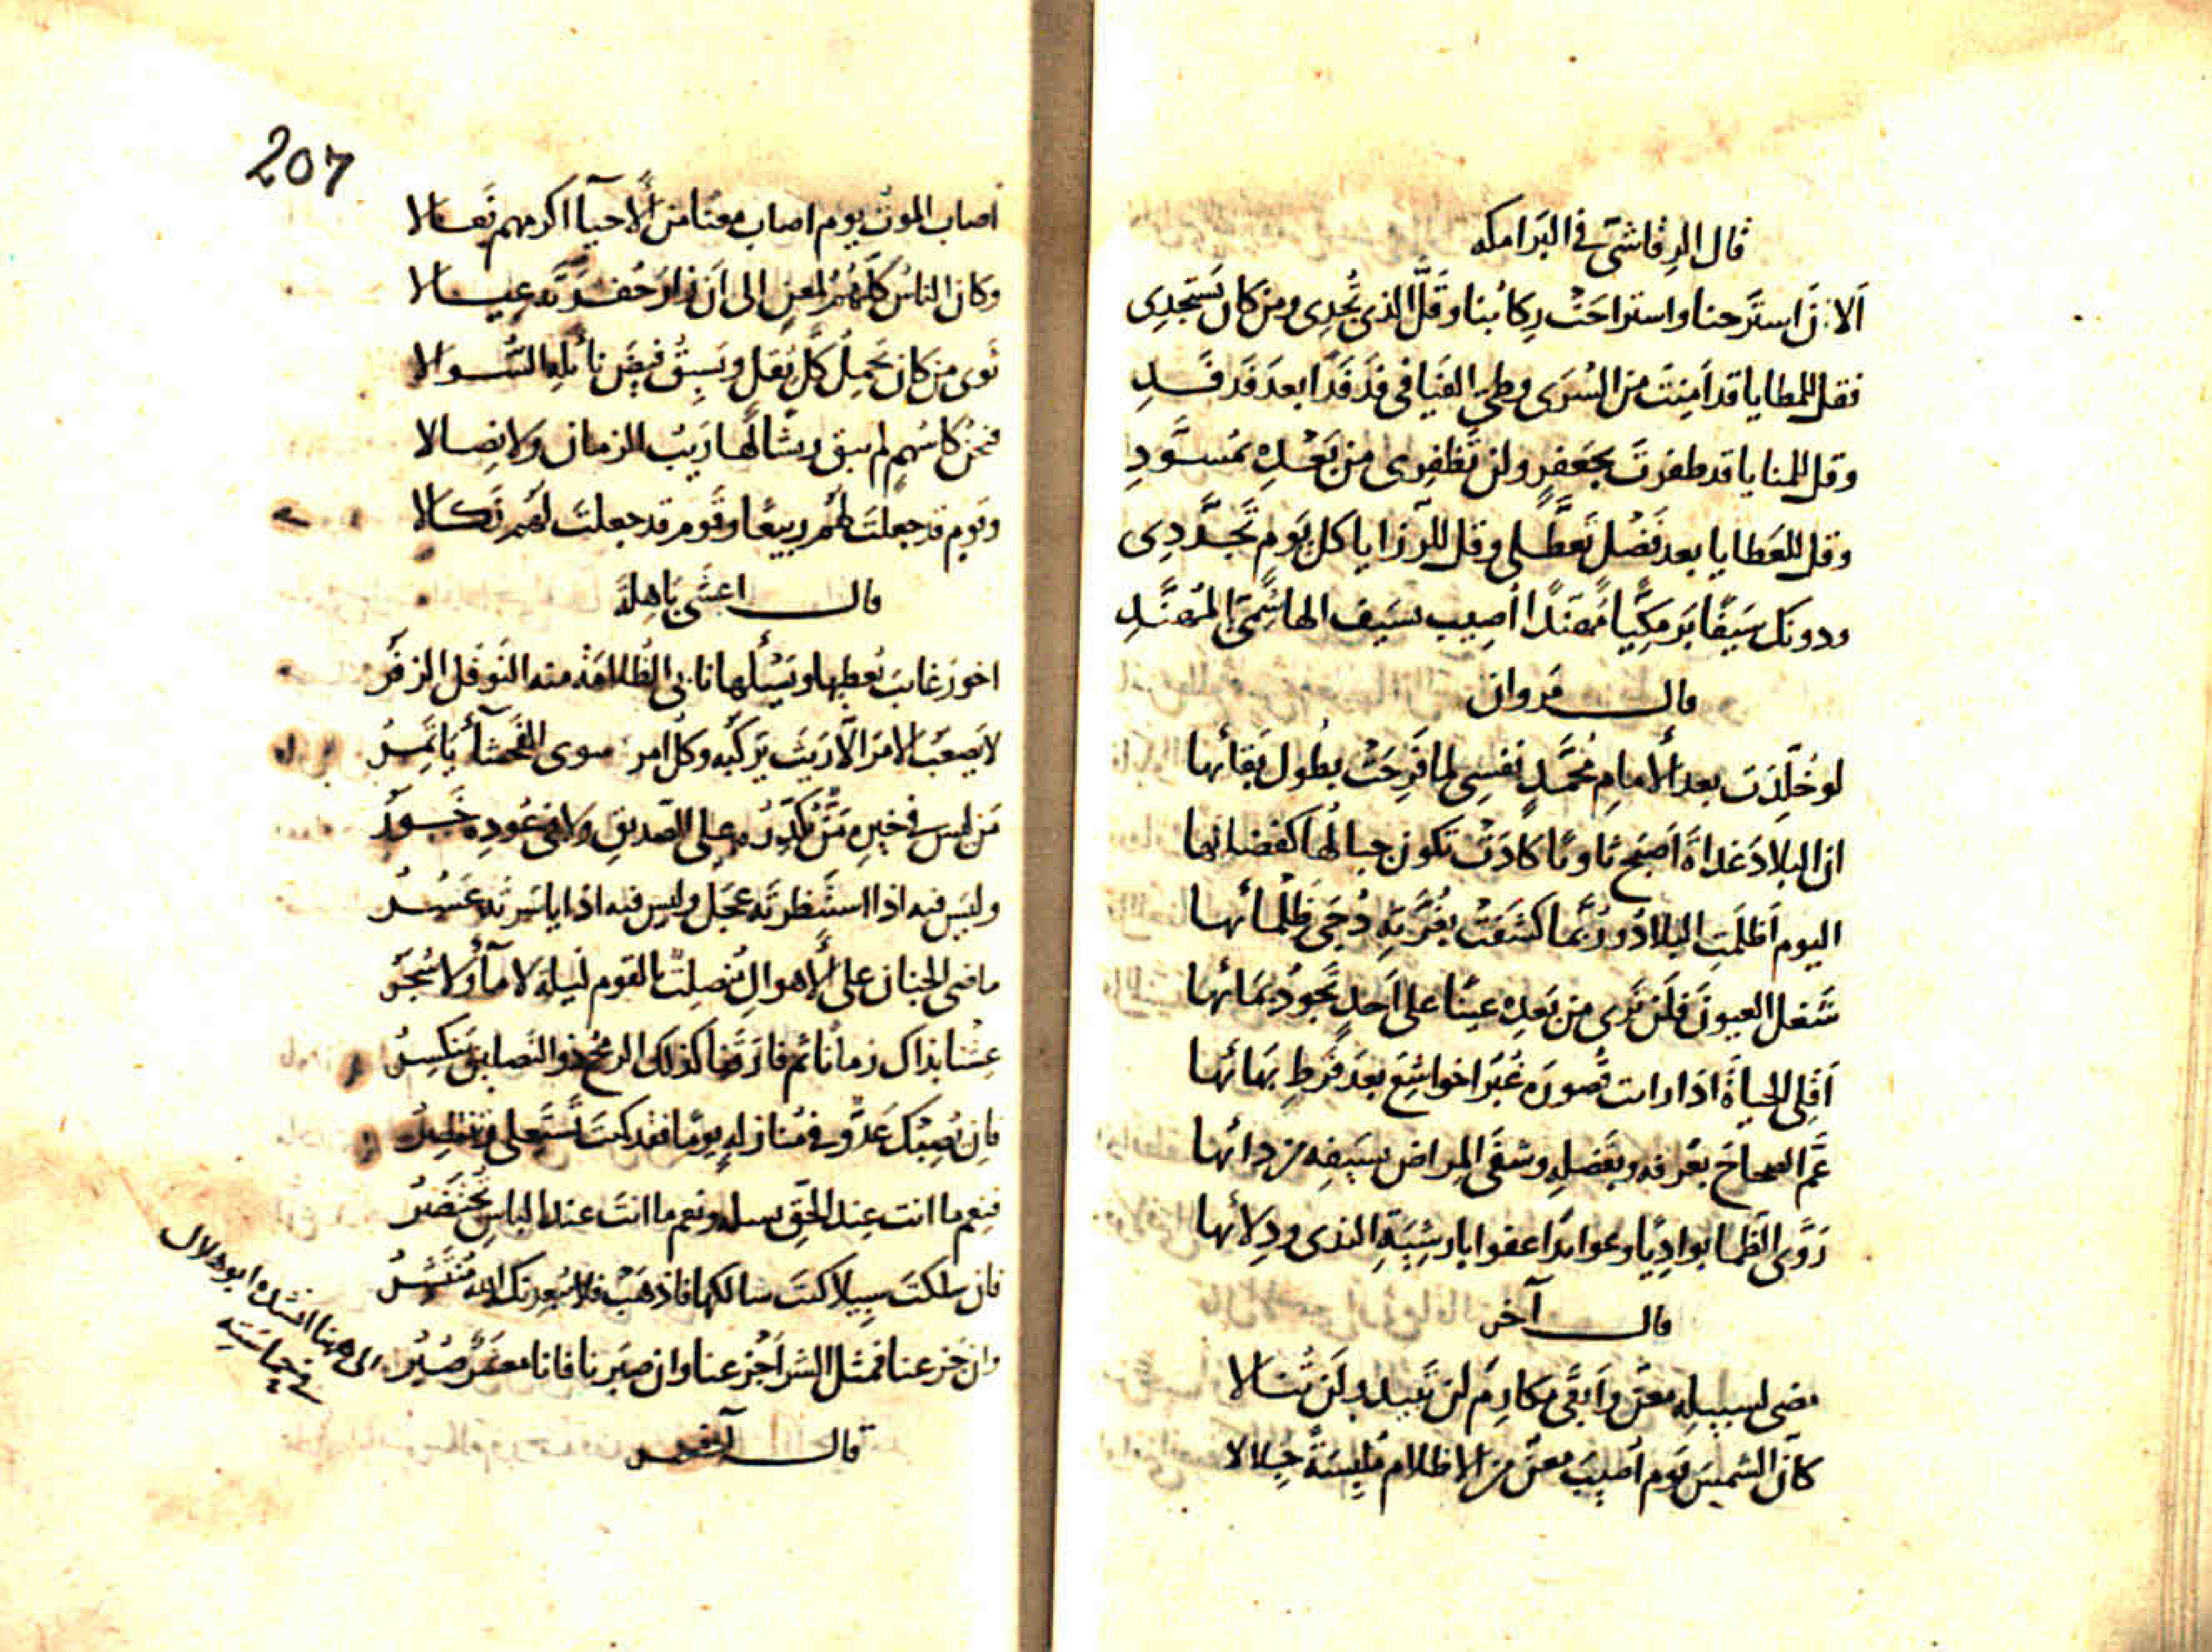 قال الرقاشي في البرامكه
الان استرحنا واستراحت ركابنا وقل الذي يجدي ومن كان يستجدي
فقل للمطايا قد امنت من السرى وطي الفيافي فدفدا بعد فدفد
وقل للمنايا قد ظفرت بجعفر ولن تظفري من بعده بمسود
وقل للعطايا بعد فضل تعطلي وقل للرزايا كل يوم تجددي
ودونك سيفا برمكيا مهندا اصيب بسيف الهاشمي المهند
قال مروان
لو خلدت بعد الامام محمد نفسي لما فرحت بطول بقائها
ان البلاد غداة اصبح ثاويا كادت تكون جبالها كفضائها
اليوم اظلمت البلاد وربما كشفت بغرته دجى ظلمائها
شغل العيون فلن ترى من بعده عينا على احد تجود بمائها
اقلي الحياة اذا رات قصوره غبرا خواشع بعد فرط بهائها
عم الصحاح بعرفه وبفضله وشفى المراض بسيفه من دائها
روى الظما بواديا وعوايدا عفوا بارشية الندى ودلائها
قال آخر
مضى لسبيله معن وابقى مكارم لن تبيد ولن تنالا
كان الشمس يوم اصيب معن من الاظلام ملبسة جلالا
207
اصاب الموت يوم اصاب معنا من الاحياء اكرمهم فعالا
وكان الناس كلهم لمعن الى ان زار حفرته عيالا
ثوى من كان يحمل كل ثقل ويسبق فيض نائله السوالا
فنحن كاسهم لم يبق ريشا لها ريب الزمان ولا نصالا
وقوم قد جعلت لهم ربيعا وقوم قد جعلت لهم نكالا
قال اعشى باهلة
اخو رغائب يعطيها ويسألها يابى الظلامة منه النوفل الزفر
لا يصعب الامر الا ريث يركبه وكل امر سوى الفحشاء ياتمر
من ليس في خيره من يكدره على الصديق ولا في عوده خور
وليس فيه اذا استنظرته عجل وليس فيه اذا ياسرته عسر
ماضي الجنان على الاهوال منصلت بالقوم ليلة لا ماء ولا شجر
عشنا بذاك زمانا ثم فارقنا كذلك الرمح ذو النصلين ينكسر
فان يصبك عدو في منازلة يوما فقد كنت تستعلي وتنتصر
فنعم ما انت عند الحق تسله ونعم ما انت عند الباس تحتضر
فان سلكت سبيلا كنت سالكها فاذهب فلا يبعدنك الله منتشر
وان جزعنا فمثل الشر اجزعنا وان صبرنا فانا معشر صبر
الى ههنا انشده ابو هلال
في حماسته
قال آخر